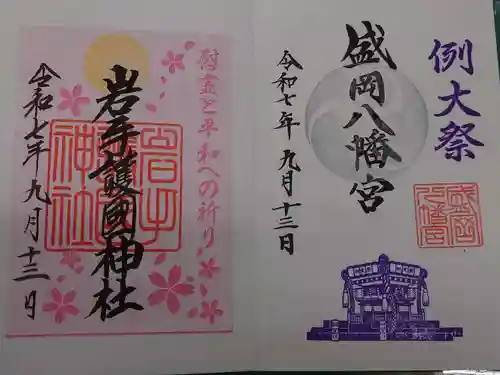 例大祭
盛岡八幡宮
盛岡八幡宮
令和七年 九月十三日
慰霊と平和への祈り
岩手護國神社
令和七年 九月十三日